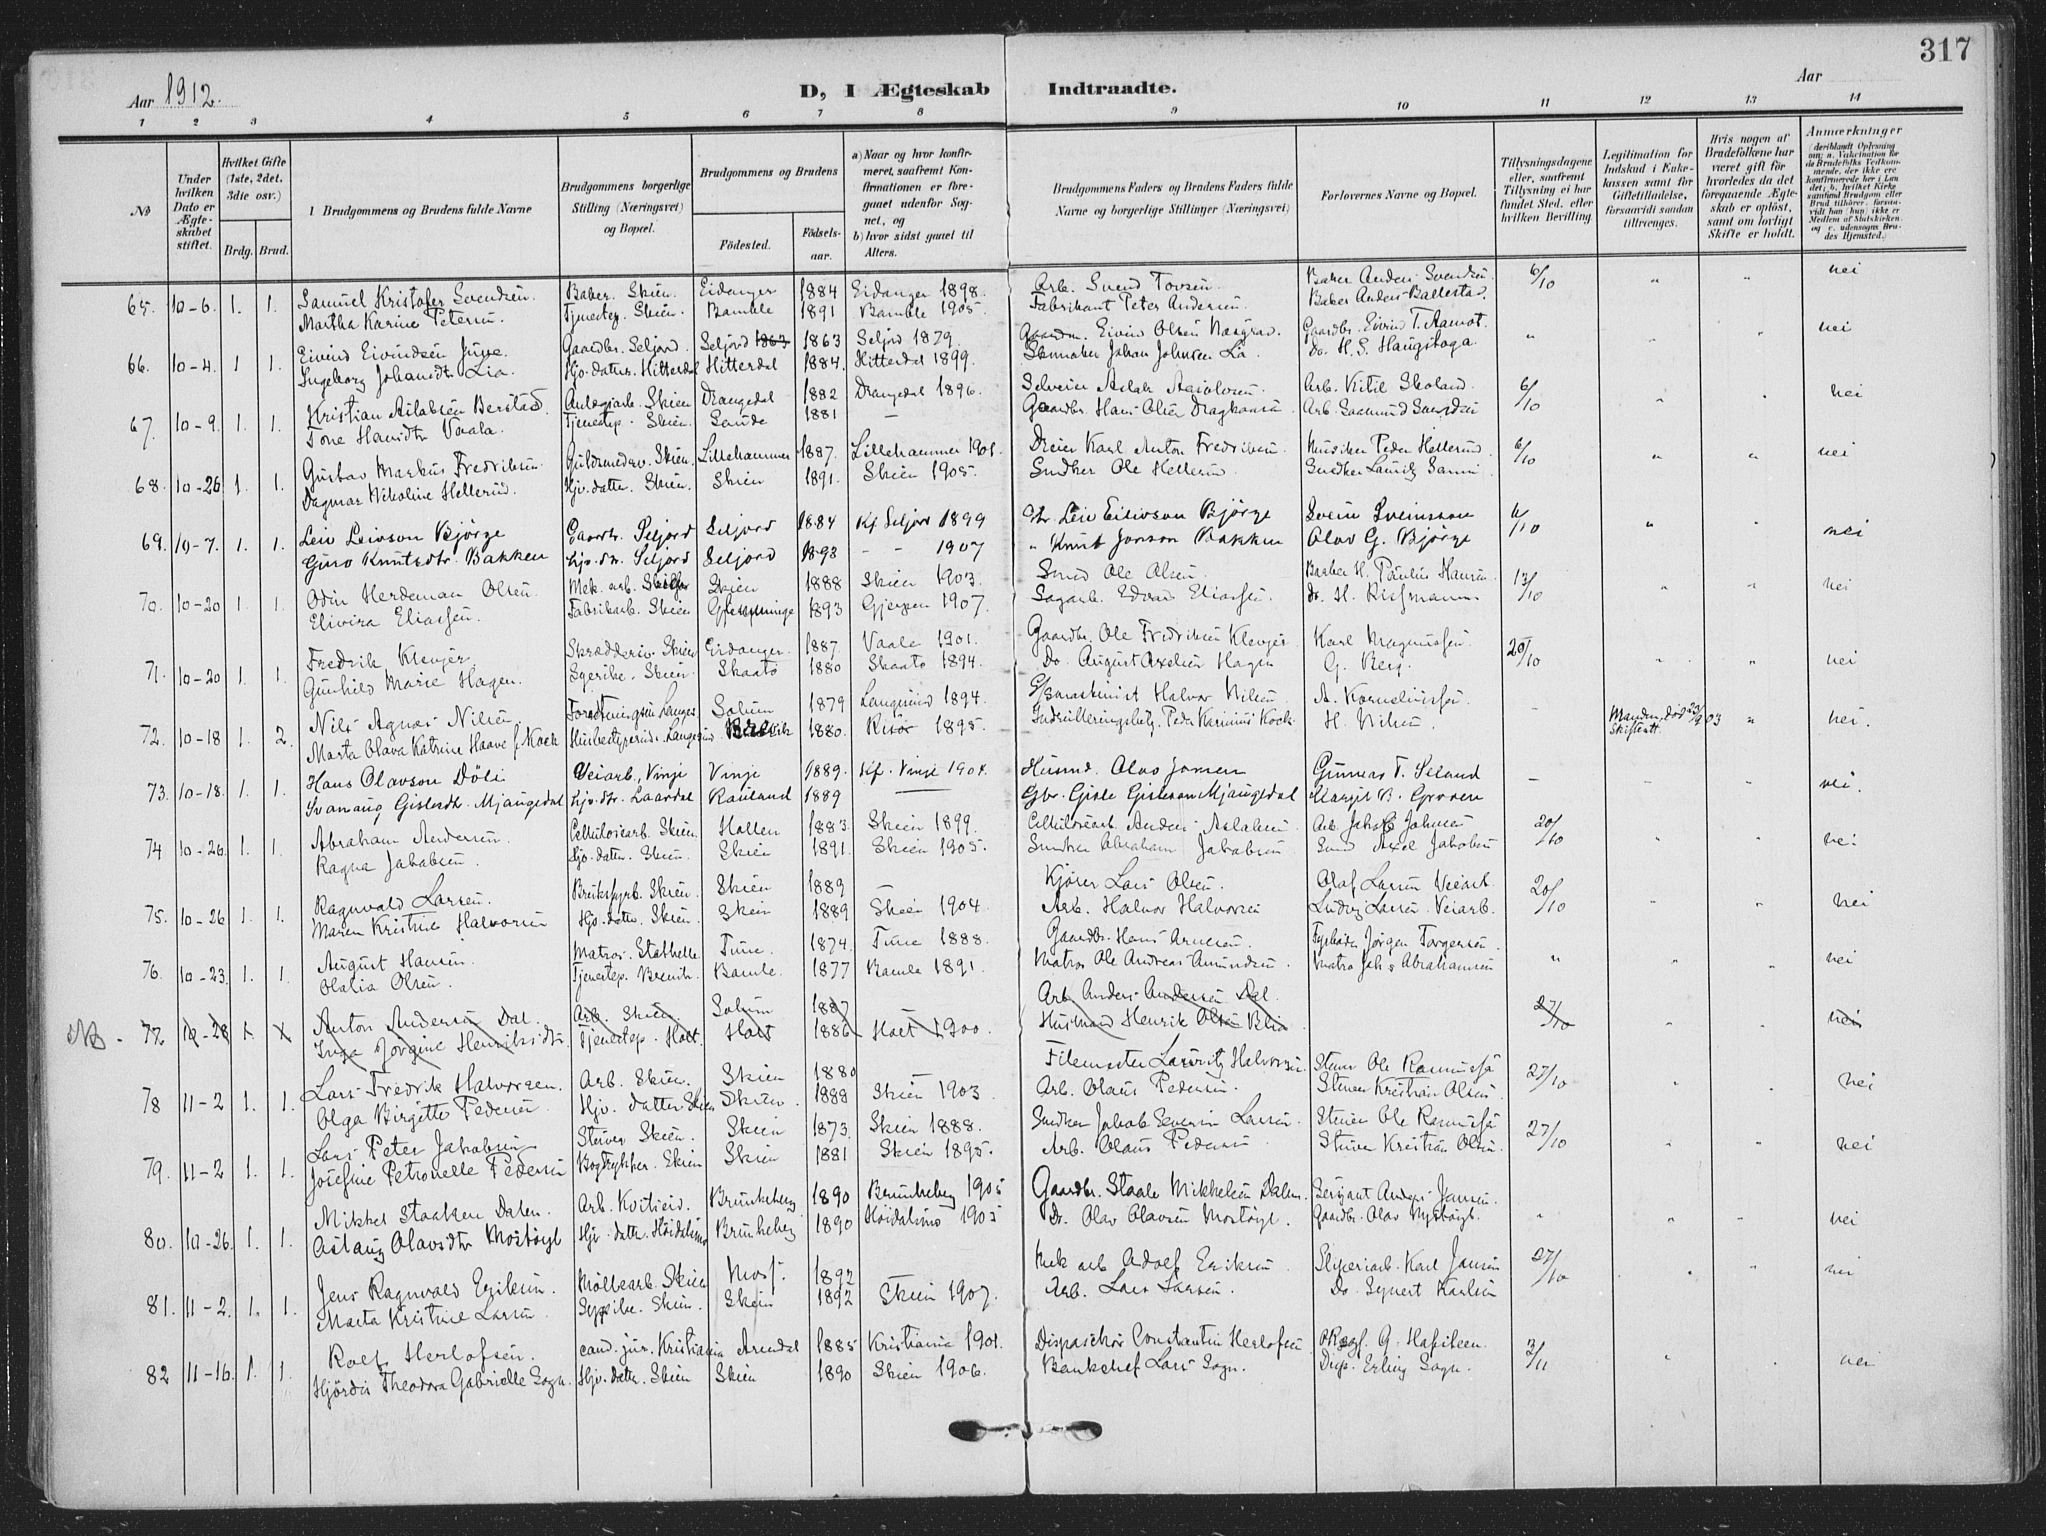 317
Aar 1912.
D, I Ægteskab Indtraadte.
Aar
1 2 3 4 5 6 7 8 9 10 11 12 13 14
No
Under hvilken Dato er Ægteskabet stiftet.
Hvilket Gifte (1ste, 2det, 3die osv.)
Brdg. Brud.
Brudgommens og Brudens fulde Navne
Brudgommens borgerlige Stilling (Næringsvei) og Bopæl.
Brudgommens og Brudens
Fødested. Fødselsaar.
a) Naar og hvor konfirmeret, saafremt Konfirmationen er foregaaet udenfor Sognet, og b) hvor sidst gaaet til Alters.
Brudgommens Faders og Brudens Faders fulde Navne og borgerlige Stillinger (Næringsvei)
Forlovernes Navne og Bopæl.
Tillysningsdagene eller, saafremt Tillysning ei har fundet Sted, efter hvilken Bevilling.
Legitimation for Indskud i Enkekassen samt for Giftetilladelse, forsaavidt saadan tiltrænges.
Hvis nogen af Brudefolkene har været gift før hvorledes da det foregaaende Ægteskab er opløst, samt om lovligt Skifte er holdt.
Anmærkninger
65. 10-6. 1. 1. Samuel Kristofer Svendsen. Bager. Skien. Eidanger 1884 Eidanger 1898. Arb. Svend Tovsen. Baker Anders Svendsen. 6/10 " " nei
Martha Karine Petersen. Tjenestep. Skien. Bamble 1891 Bamble 1905. Fabrikant Peter Andersen. Baker Anders Ballestad.
66. 10-4. 1 1. Eivind Eivindsen Juve. Gaardbr. Seljord. Seljord 1863 1863 Seljord 1879. Gaardm. Eivind Olsen Gaardbr. Eivind T. Aamot. " " " nei
Ingeborg Johansdtr Lia. Hjv. datter. Hitterdal Hitterdal 1884. Hitterdal 1899. Johan Johnsen Lia Do. H. S. Haugstoga.
67. 10-9. 1. 1. Kristian Aslaksen Berstad. Anlægsarb. Skien Drangedal 1882 Drangedal 1896. Selveier Aslak Arb. Kitil Skoland. 6/10 " " nei
Tone Hansdtr Vaala. Tjenestep. Skien. Sande 1881 - Gaardbr. Hans Olsen
68. 10-26 1. 1. Gustav Markus Fredriksen. Guldsmedsv. Skien. Lillehammer 1887. Lillehammer 1901. Dreier Karl Anton Fredriksen. Musiker Peder Hellerud. 6/10 " " nei
Dagmar Nikoline Hellerud. Hjv. datter. Skien. Skien 1891. Skien 1905. Snedker Ole Hellerud. Snedker Lauritz
69. 10-7. 1. 1. Leiv Leivson Bjørge Seljord Seljord 1884 Kf. Seljord 1899 Gbr. Leiv Eilivson Bjørge Svein Sveinsson 6/10 " nei
Guro Knutsdtr. Bakken hjv. dtr. Seljord Seljord 1893 - - 1907 " Knut Jonson Bakken Olav G. Bjørge
70. 10-20 1. 1. Odin Herdeman Olsen. Mek. arb. Skien Skien 1888 Skien 1903. Smed Ole Olsen. Barber H. Paulus Hansen. 13/10 " " nei
Elivira Eliassen. Fabrikarb. Skien 1893 Gjerpen 1907. Sagarb. Edvard Eliassen.
71. 10-20 1. 1. Fredrik Klevjer. Skræddersv. Skien Eidanger. 1887. Vaale 1901. Gaardbr. Ole Fredriksen Klevjer Karl Magnussen. 20/10 " " nei
Gunhild Marie Hagen. Syerske. Skien. Skaatø 1880 Skaatø 1894. Do. August Axelsen Hagen G. Berg.
72. 10-18 1. 2. Nils Agnar Nilsen. Solum 1879 Langesund 1894. Halvor Nilsen A. Korneliussen. - Manden død 23/9 03 " nei.
Marta Olava Katrine Haave f. Koch 1880. Risør 1895. Peder Koch. H. Nilsen Skifteatt.
73. 10-18. 1. 1. Hans Olavson Døli Veiarb. Vinje Vinje 1889. Kf. Vinje 1904. Husmd. Olav Jonsen Gunnar T. Seland - nei.
Svanaug Gislesdtr. Mjaugedal hjv. dtr. Laardal Rauland 1889 Gbr. Gisle Gisleson Mjaugedal Margit B. Groven
74 10-26. 1. 1. Abraham Andersen. Cellulosearb. Skien. Hollen 1883. Skien 1899. Cellulosearb. Anders Aslaksen. Arb. Jakob Johnsen 20/10 " nei
Ragna Jakobsen. Hjv. datter. Skien. Skien 1891. Skien 1905. Snedker Abraham Jakobsen Smed Axel Jakobsen
75. 10-26 1. 1. Ragnvald Larsen. Skien. Skien 1889 - Kjører Lars Olsen. Olaf Larsen Veiarb. 20/10 " " nei
Maren Kristine Halvorsen Hjv. datter. Skien. Skien 1889 Skien 1904. Arb. Halvor Halvorsen Ludvig Larsen. Veiarb.
76. 10-23. 1. 1. August Hansen. Matros. Stathelle Tune. 1874. Tune 1888. Gaardbr. Hans Arnesen. Jørgen Torgersen. " " nei
Olalia Olsen. Tjenestep. Bamle. 1877 Bamle 1891. Matros Ole Andreas Amundsen. Matros Abrahamsen
NB. 77. 10-28 1. X Anton Andersen Dal. Arb. Skien. Solum 1887 - Arb. Anders Andersen Dal. 27/10 nei
Inga Jorgine Henriksdtr. Tjenestep. Holt. Holt 1886 Holt 1900. Husmand Henrik Olsen
78 11-2 1. 1. Lars Fredrik Halvorsen. Arb. Skien. Skien 1880 - Filemester Lauritz Halvorsen. Stuer Ole Rasmussen 27/10 " " nei
Olga Birgitte Pedersen. Hjv. datter Skien Skien. 1888 Skien 1903. Arb. Olaus Pedersen. Stuer Kristian Olsen.
79. 11-2 1. 1. Lars Peter Jakobsen Skien. Skien 1873. Skien 1888. Snedker Jakob Severin Larsen. Stuer Ole Rasmussen 27/10 " " nei
Josefine Petronelle Pedersen Bogtrykker. Skien Skien 1881 Skien 1895. Arb. Olaus Pedersen Stuer Kristian Olsen.
80. 10-26. 1. 1. Mikkel Staaksen Dalen. Arb. Kviteseid. Brunkeberg 1890 Brunkeberg 1905 Gaardbr. Staale Mikkelsen Dalen. Sersjant Anders Jansen. " " " nei
Aslaug Olavsdtr Mostøyl Hjv. datter. Høidalsmo Brunkeberg 1890 Høidalsmo 1905 Do. Olav Olavsen Mostøyl. Gaardbr. Olav Mystøyl.
81. 11-2. 1. 1. Jens Ragnvald Eriksen. Møllearb. Skien Moss. 1892 - Mek arb Adolf Eriksen Sliperiarb. Karl Jansen 27/10 . " nei
Marta Kristine Larsen. Syerske. Skien. Skien 1892 Skien 1907. Arb. Lars Larsen. Do. Synert Karlsen
82 11-16. 1. 1. Rolf Herlofsen. cand. jur. Kristiania Arendal 1885 Kristiania 1901. Dispaschør Constantin Herlofsen 2/11 " . nei
Hjørdis Theodora Gabrielle Sogn. Hjv. datter. Skien Skien 1890 Skien 1906. Bankchef Lars Sogn. Disp. Erling Sogn.